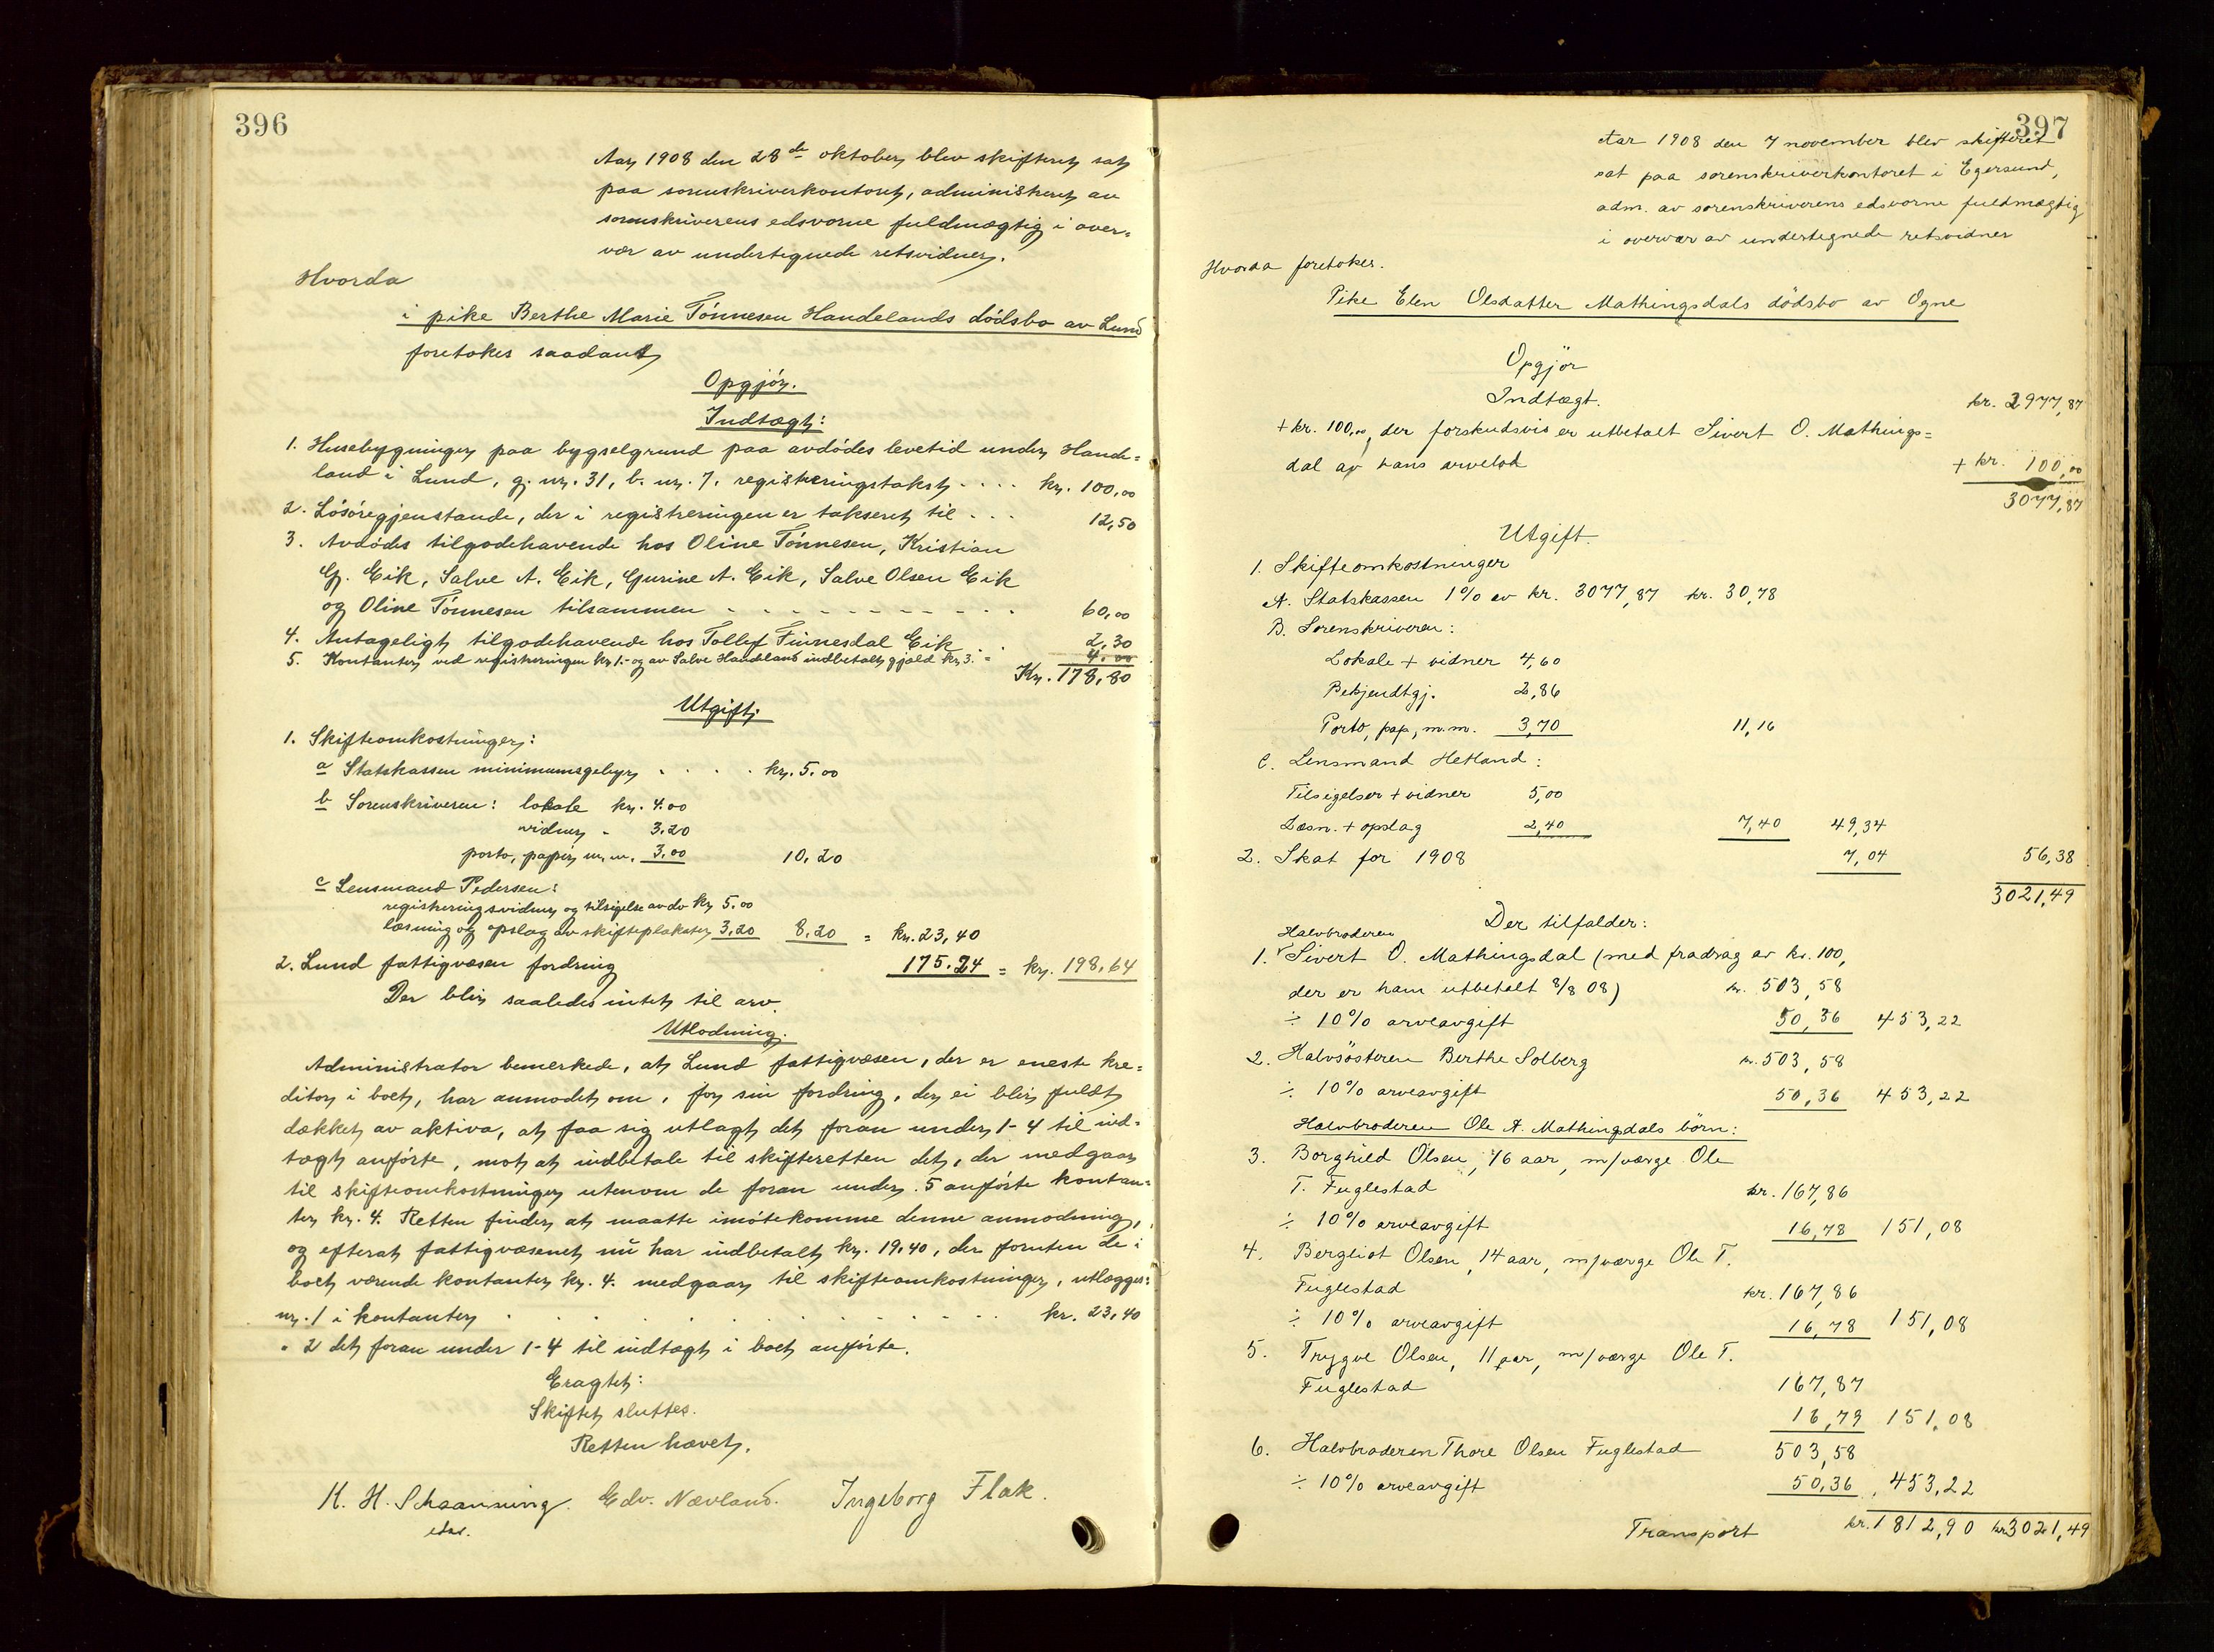 396
Aar 1908 den 28de oktober blev skifteret sat
paa sorenskriverkontoret, administreret av
sorenskriverens edsvorne fuldmægtig i over-
vær av undertegnede retsvidner.
Hvorda
i pike Berthe Marie Tönnesen Handelands dödsbo av Lund
foretokes saadant
Opgjör.
Indtægt:
1. Husebygninger paa bygselgrund paa avdödes levetid under Hande=
land i Lund, g. nr. 31, b. nr. 7, registreringstakst . . . . kr. 100,00
2. Lösöregjenstande, der i registreringen er takseret til . . . 12,50
3. Avdödes tilgodehavende hos Oline Tönnesen, Kristian
G. Eik, Salve A. Eik, Gurine A. Eik, Salve Olsen Eik
og Oline Tönnesen tilsammen - - - - - - - - - - 60,00
4. Antageligt tilgodehavende hos Tollef Finnesdal Eik . . 2,30
5. Kontanter ved registreringen kr. 1.- og av Salve Handeland indbetalt gjæld kr. 3.- = 4.00
Kr. 178,80
Utgift:
1. Skifteomkostninger:
a Statskassen minimumsgebyr . . . . kr. 5.00
b Sorenskriveren: lokale kr. 4.00
vidner - 3.20
porto, papir m.m. 3,00 10,20
c Lensmand Pedersen:
registreringsvidner og tilsigelse av do kr 5.00
læsning og opslag av skifteplakater 3,20 8,20 = kr. 23,40
2. Lund fattigvæsen fordring 175.24 = kr. 198,64
Der blir saaledes intet til arv.
Utlodning.
Administrator bemerkede, at Lund fattigvæsen, der er eneste kre=
ditor i boet, har anmodet om, for sin fordring, der ei blir fuldt
dækket av aktiva, at faa sig utlagt det foran under 1-4 til ind-
tægt anförte, mot at indbetale til skifteretten det, der medgaar
til skifteomkostninger utenom de foran under 5 anförte kontan=
ter kr. 4. Retten finder at maatte imötekomme denne anmodning,
og efterat fattigvæsenet nu har indbetalt kr. 19,40, der foruten de i
boet værende kontanter kr. 4. medgaar til skifteomkostninger, utlægges:
nr. 1 i kontanter . . . . . . . . . . kr. 23,40
" 2 det foran under 1-4 til indtægt i boet anförte.
Eragtet:
Skiftet sluttes.
Retten hævet.
K. H. Schaanning. Edv. Nævland. Ingeborg Flak.
edsv.
397
Aar 1908 den 7 november blev skifteret
sat paa sorenskriverkontoret i Egersund,
adm. av sorenskriverens edsvorne fuldmægtig
i overvær av undertegnede retsvidner
Hvorda foretokes.
Pike Elen Olsdatter Mathingsdals dödsbo av Ogne
Opgjör
Indtægt. kr. 2977,87
+ kr. 100,00, der forskudsvis er utbetalt Sivert O. Mathings=
dal av hans arvelod + kr. 100,00
3077,87
Utgift.
1. Skifteomkostninger
A. Statskassen 1% av kr. 3077,87 kr. 30,78
B. Sorenskriveren:
Lokale + vidner 4,60
Bekjendtgj. 2,86
Porto, pap, m.m. 3,70 11,16
C. Lensmand Hetland:
Tilsigelser + vidner 5,00
Læsn. + opslag 2,40 7,40 49,34
2. Skat for 1908 7,04 56,38
3021,49
Der tilfalder:
Halvbroderen
1. Sivert O. Mathingsdal (med fradrag av kr. 100,
der er ham utbetalt 8/8 08) kr. 503,58
÷ 10% arveavgift 50,36 453,22
2. Halvsösteren Berthe Solberg kr. 503,58
÷ 10% arveavgift 50,36 453,22
Halvbroderen Ole A. Mathingsdals börn:
3. Borghild Olsen, 16 aar, m/værge Ole
T. Fuglestad kr. 167,86
÷ 10% arveavgift 16,78 151,08
4. Bergliot Olsen, 14 aar, m/værge Ole T.
Fuglestad kr. 167,86
÷ 10% arveavgift 16,78 151,08
5. Trygve Olsen, 11 aar, m/værge Ole T.
Fuglestad 167,87
16,79 151,08
6. Halvbroderen Thore Olsen Fuglestad 503,58
÷ 10% arveavgift 50,36 453,22
Transport kr. 1812,90 kr 3021,49